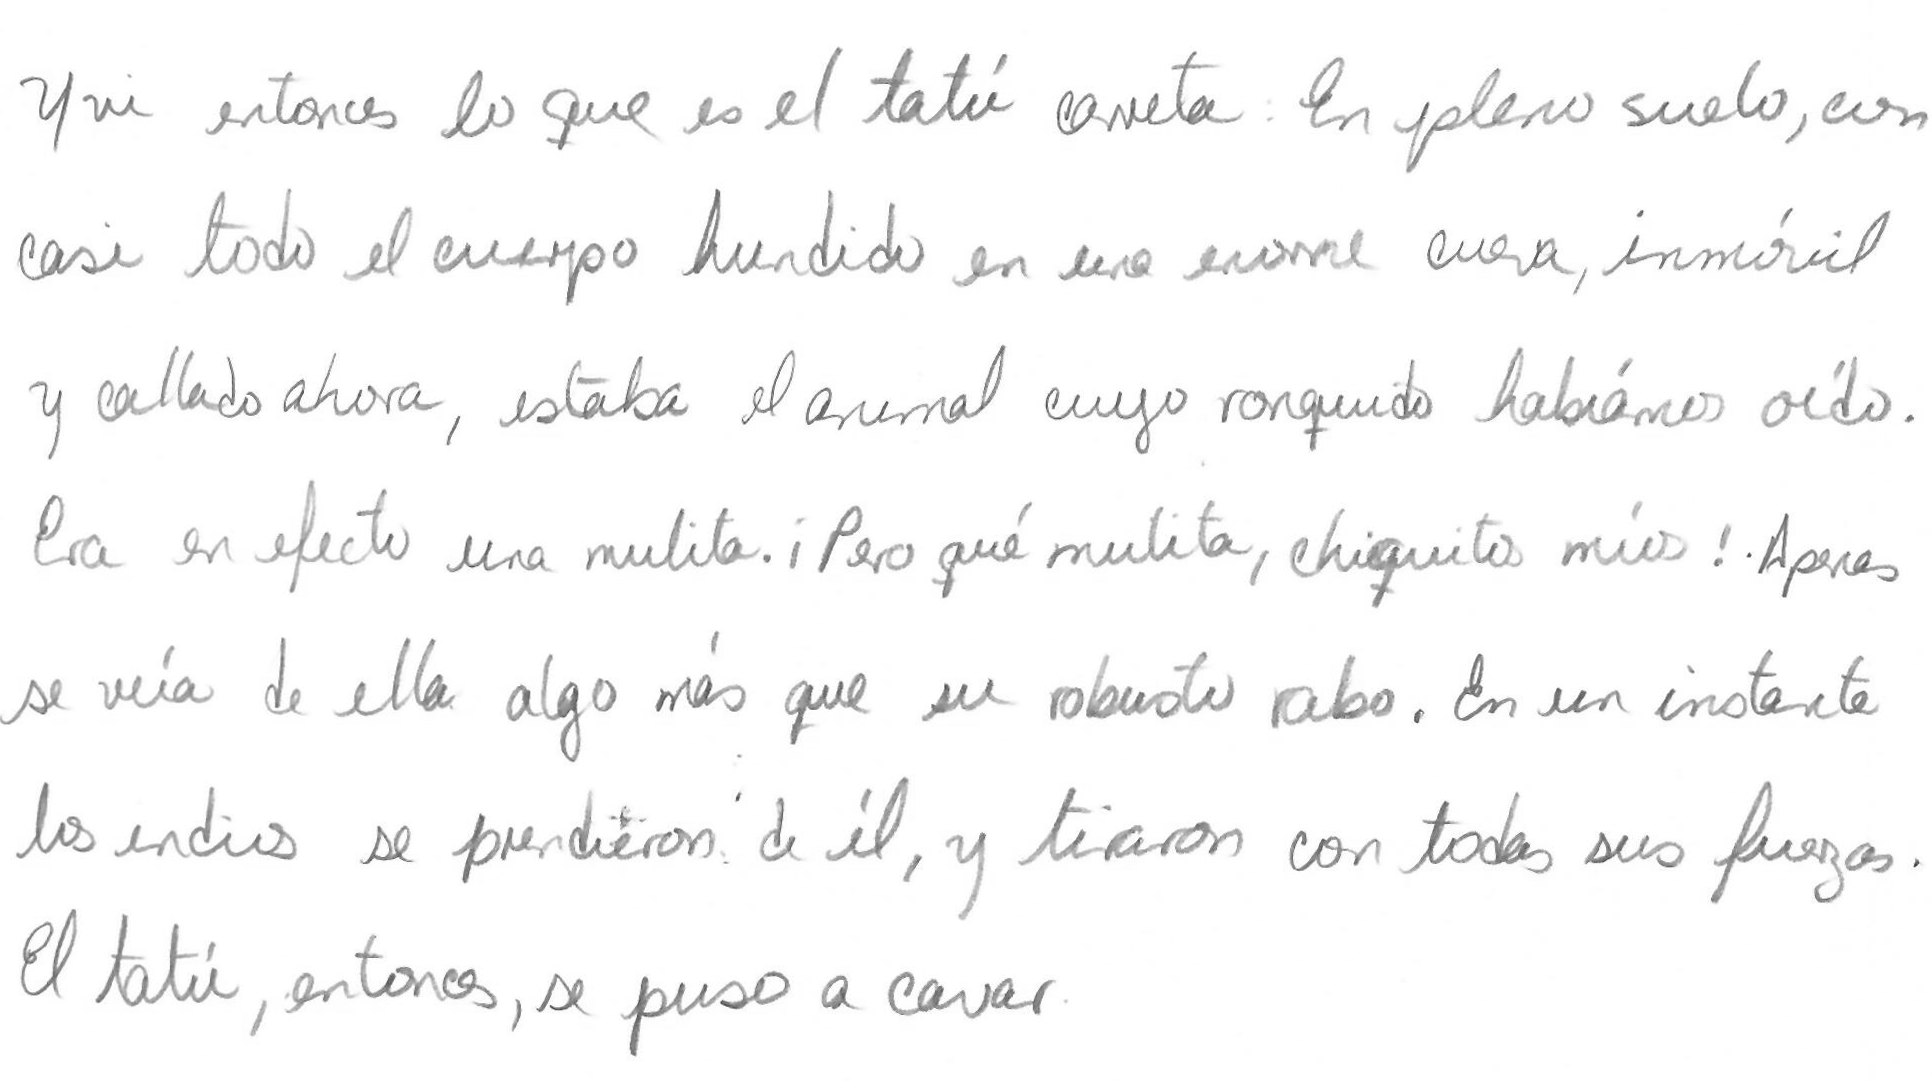 Y vi entonces lo que es el tatú carreta: En pleno suelo, con
casi todo el cuerpo hundido en una enorme cueva, inmóvil
y callado ahora, estaba el animal cuyo ronquido habíamos oído.
Era en efecto una mulita. ¡Pero qué mulita, chiquitos míos! Apenas
se veía de ella algo más que su robusto rabo. En un instante
los indios se prendieron de él, y tiraron con todas sus fuerzas.
El tatú, entonces, se puso a cavar.